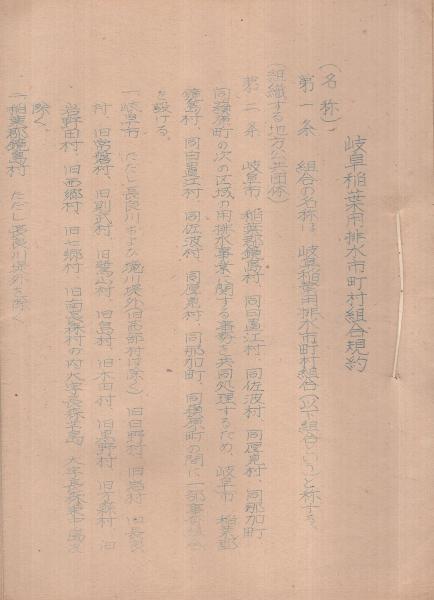 岐阜稲葉用排水市町村組合規約
(名称)
第一条 組合の名称は、岐阜稲葉用排水市町村組合(以下組合という)と称する。
(組織する地方公共団体)
第二条 岐阜市、稲葉郡鏡島村、同日置江村、同佐波村、同厚見村、同那加町、
町の次の区域の用排水事業に関する事務を共同処理するため、岐阜市、稲葉郡
鏡島村、同日置江村、同佐波村、同厚見村、同那加町、町の間に一部事務組合
を設ける。
一、岐阜市 ただし長良川および境川堤外(旧西部村は除く)、旧日野村、旧岩村、旧長良
村、旧常磐村、旧則武村、旧鷺山村、旧島村、旧木田村、旧黒野村、旧方県村、旧
岩野田村、旧西郷村、旧七郷村、旧南長森村の内大字長森芋島、大字長森
除く。
一、稲葉郡鏡島村 ただし長良川堤外を除く